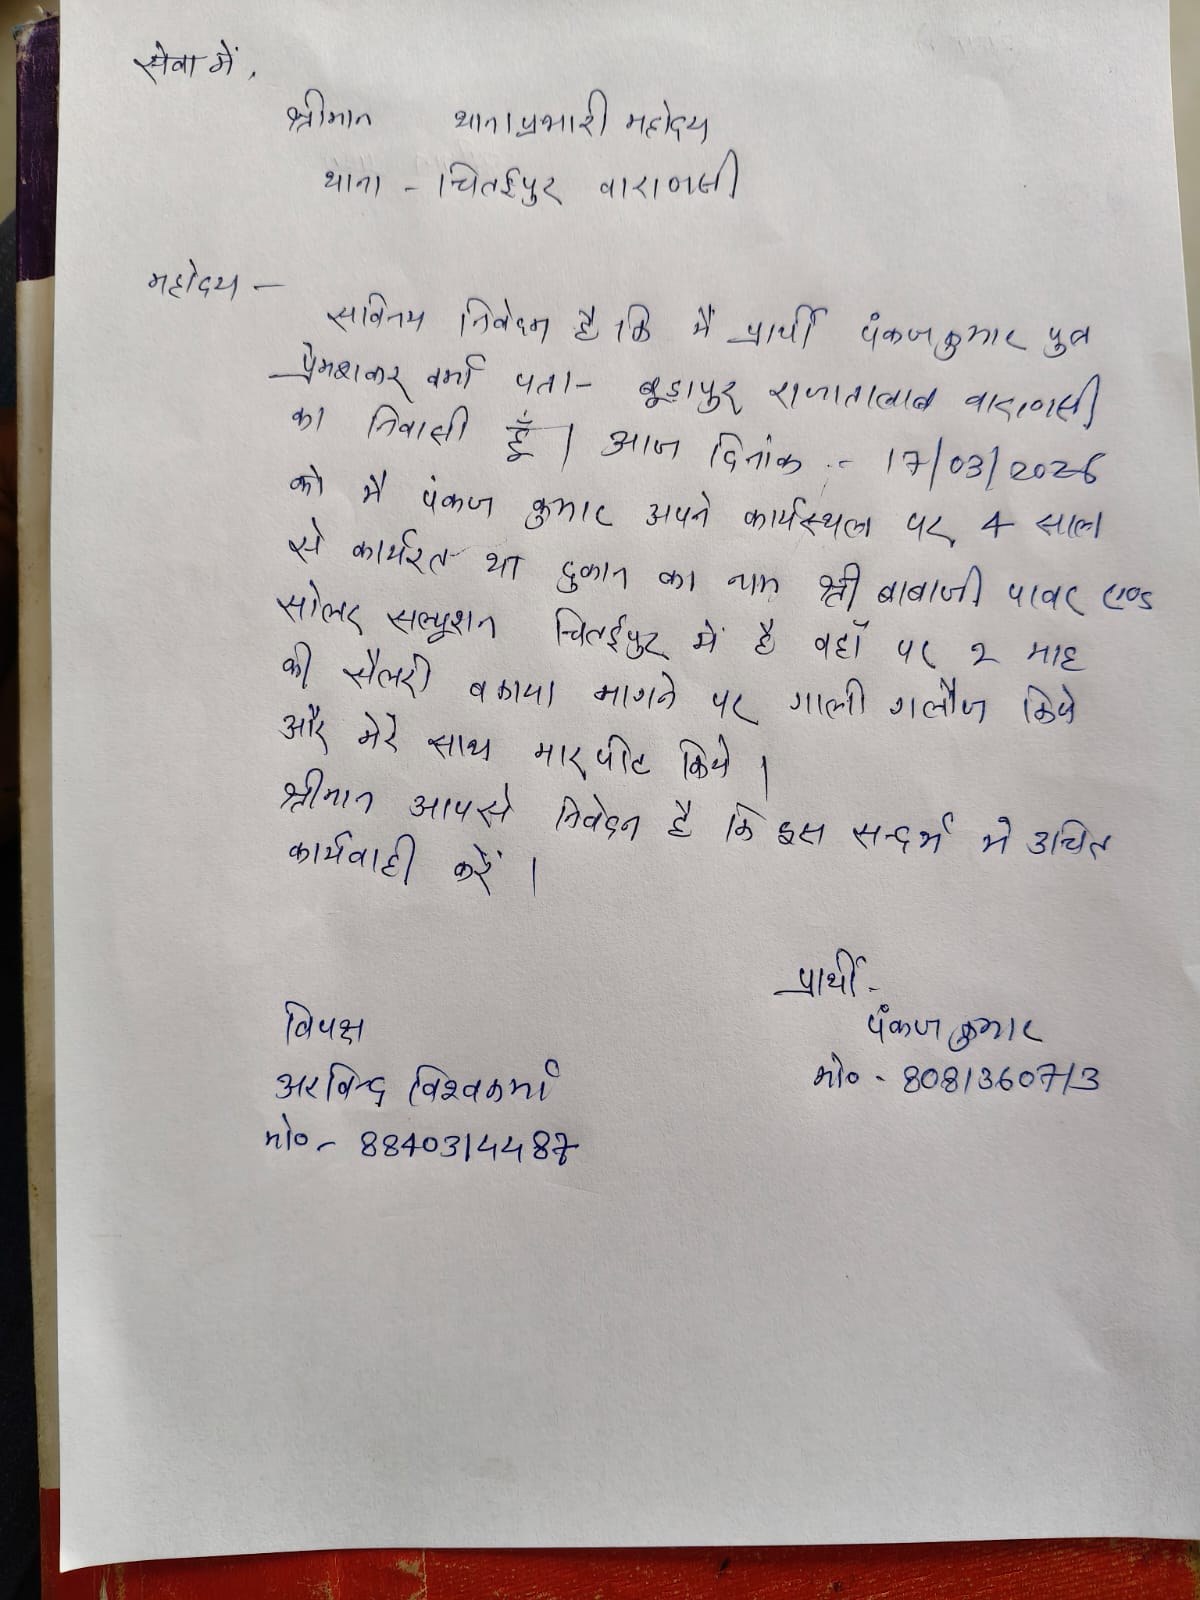 सेवा में,
श्रीमान थाना प्रभारी महोदय
थाना - चितईपुर वाराणसी
महोदय -
सविनय निवेदन है कि मैं प्रार्थी पंकज कुमार पुत्र
प्रेमशंकर वर्मा पता - बूड़ापुर राजातालाब वाराणसी
का निवासी हूँ। आज दिनांक :- 17/03/2026
को मै पंकज कुमार अपने कार्यस्थल पर 4 साल
से कार्यरत था दुकान का नाम श्री बाबाजी पावर एण्ड
सोलर सल्यूशन चितईपुर में है वहाँ पर 2 माह
की सैलरी बकाया मागने पर गाली गलौज किये
और मेरे साथ मारपीट किये।
श्रीमान आपसे निवेदन है कि इस सन्दर्भ मे उचित
कार्यवाही करें।
प्रार्थी -
पंकज कुमार
मो० - 8081360713
विपक्ष
अरविन्द विश्वकर्मा
मो० - 8840314487